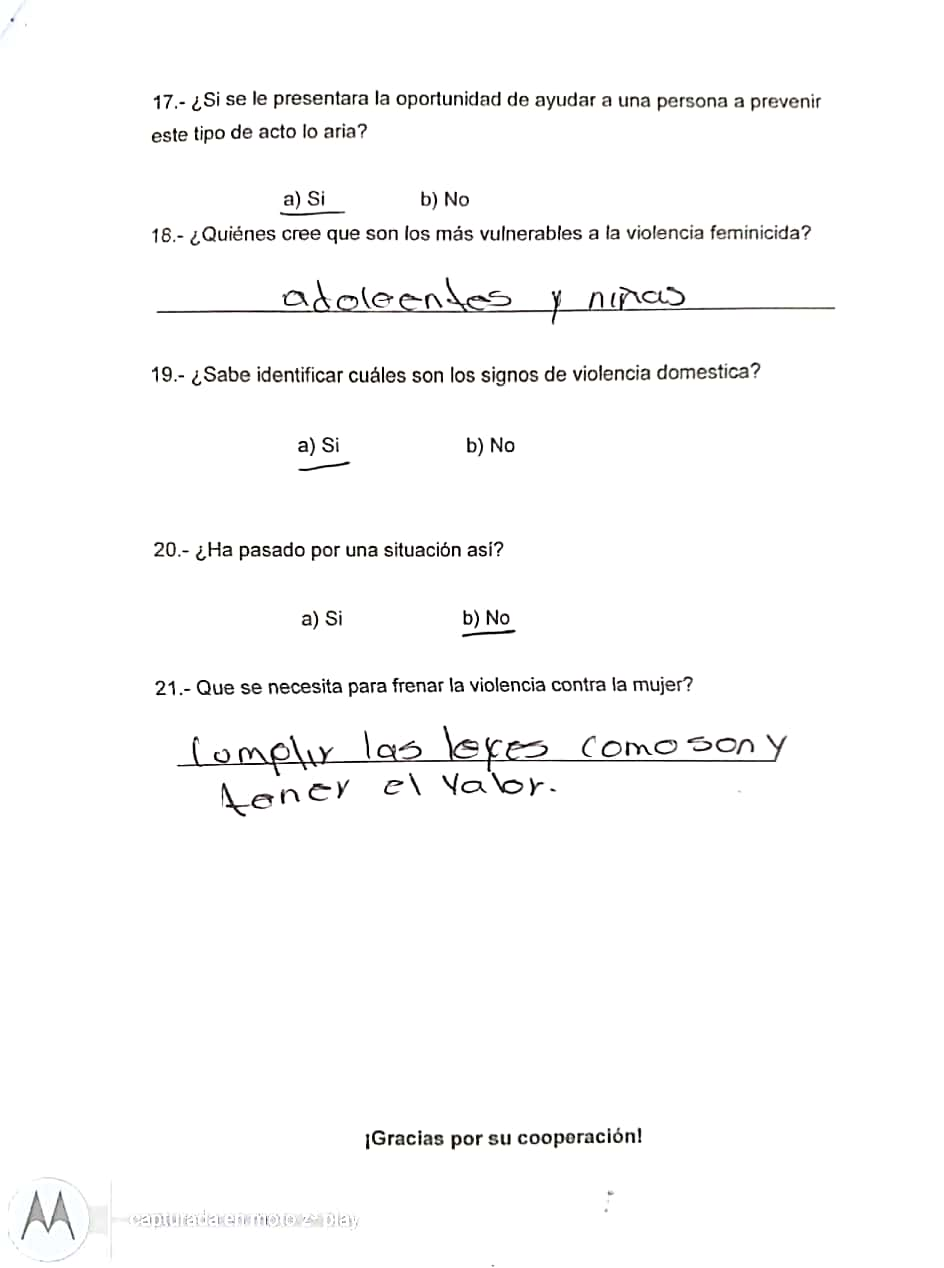 17.- ¿Si se le presentara la oportunidad de ayudar a una persona a prevenir
este tipo de acto lo aria?
a) Si b) No
18.- ¿Quiénes cree que son los más vulnerables a la violencia feminicida?
adoleentes y niñas
19.- ¿Sabe identificar cuáles son los signos de violencia domestica?
a) Si b) No
20.- ¿Ha pasado por una situación así?
a) Si b) No
21.- Que se necesita para frenar la violencia contra la mujer?
Cumplir las leyes como son y
tener el valor.
¡Gracias por su cooperación!
capturada en moto z² play